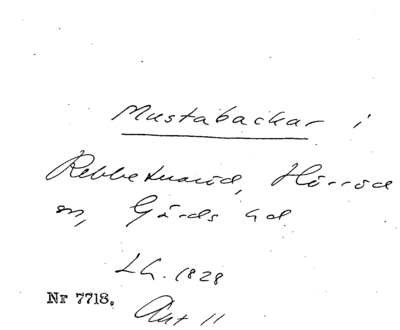 Mustabackar i
Rebbetuaröd, Hörröd
sn, Gärds hd.
Lh. 1828
Nr 7718. Ant 11